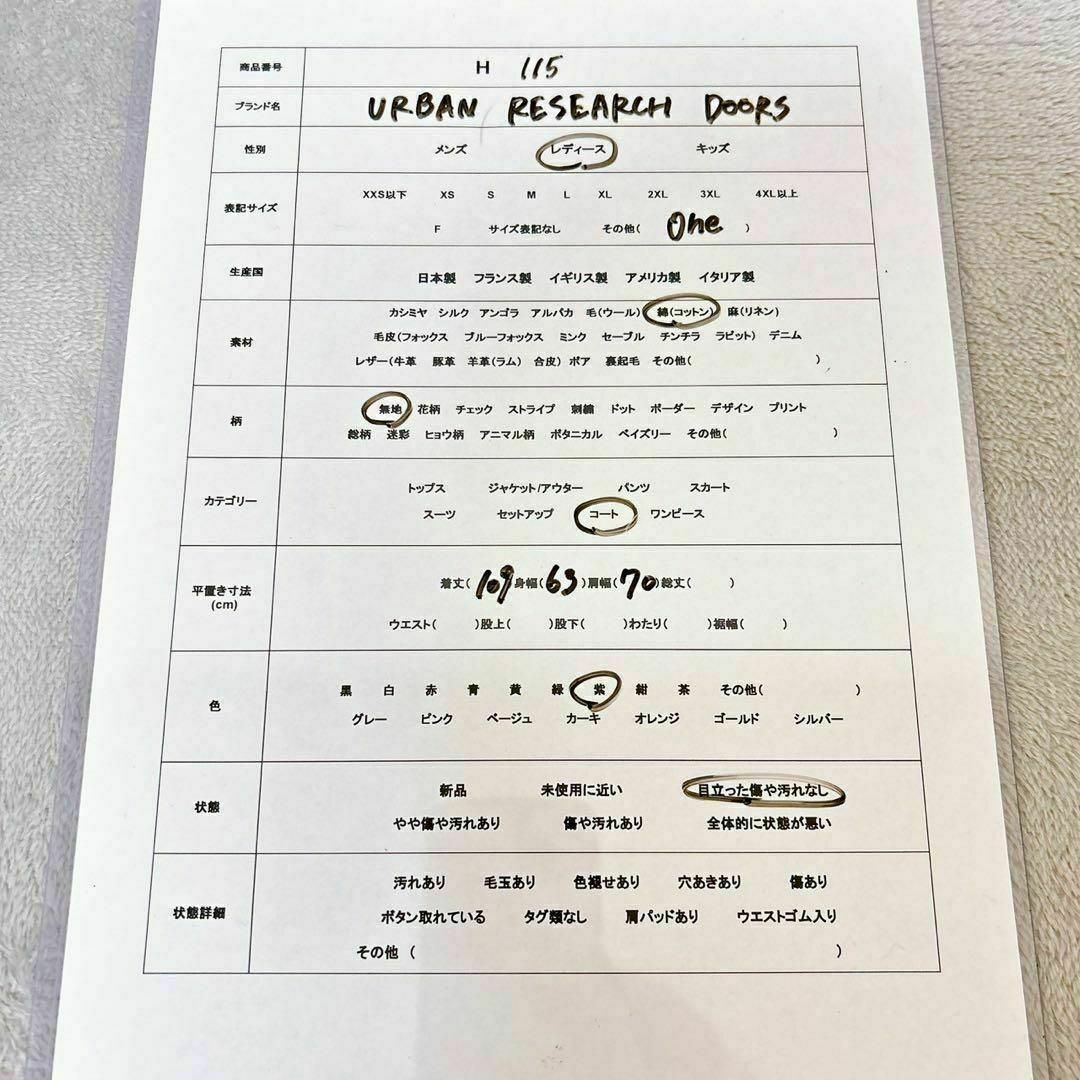 商品番号 H 115
ブランド名 URBAN RESEARCH DOORS
性別 メンズ レディース キッズ
表記サイズ
XXS以下 XS S M L XL 2XL 3XL 4XL以上
F サイズ表記なし その他( One )
生産国 日本製 フランス製 イギリス製 アメリカ製 イタリア製
素材
カシミヤ シルク アンゴラ アルパカ 毛(ウール) 綿(コットン) 麻(リネン)
毛皮(フォックス ブルーフォックス ミンク セーブル チンチラ ラビット) デニム
レザー(牛革 豚革 羊革(ラム) 合皮) ボア 裏起毛 その他( )
柄
無地 花柄 チェック ストライプ 刺繍 ドット ボーダー デザイン プリント
総柄 迷彩 ヒョウ柄 アニマル柄 ボタニカル ペイズリー その他( )
カテゴリー
トップス ジャケット/アウター パンツ スカート
スーツ セットアップ コート ワンピース
平置き寸法
(cm)
着丈( 109 身幅( 63 )肩幅( 70 )総丈( )
ウエスト( )股上( )股下( )わたり( )裾幅( )
色
黒 白 赤 青 黄 緑 紫 紺 茶 その他( )
グレー ピンク ベージュ カーキ オレンジ ゴールド シルバー
状態
新品 未使用に近い 目立った傷や汚れなし
やや傷や汚れあり 傷や汚れあり 全体的に状態が悪い
状態詳細
汚れあり 毛玉あり 色褪せあり 穴あきあり 傷あり
ボタン取れている タグ類なし 肩パッドあり ウエストゴム入り
その他 ( )